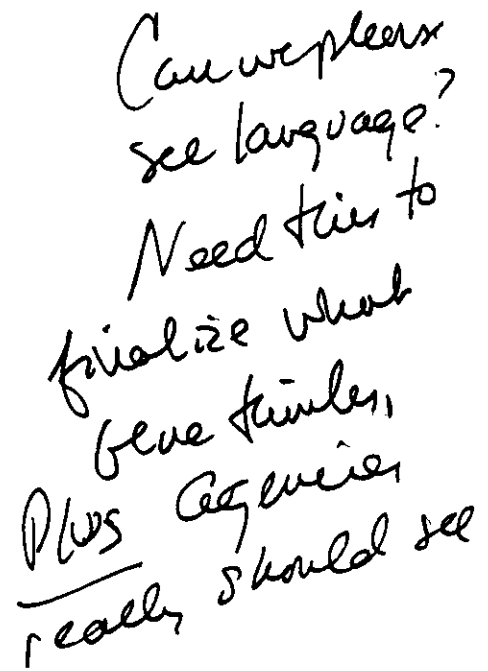 Can we please
see language?
Need this to
finalize what
Gene thinks,
Plus agencies
really should see